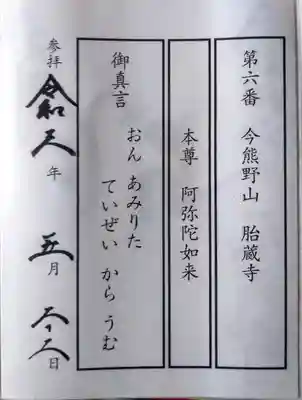 第六番 今熊野山 胎蔵寺
本尊 阿弥陀如来
御真言
おん あみりた
ていぜい から うむ
参拝 令和 年 五月 日